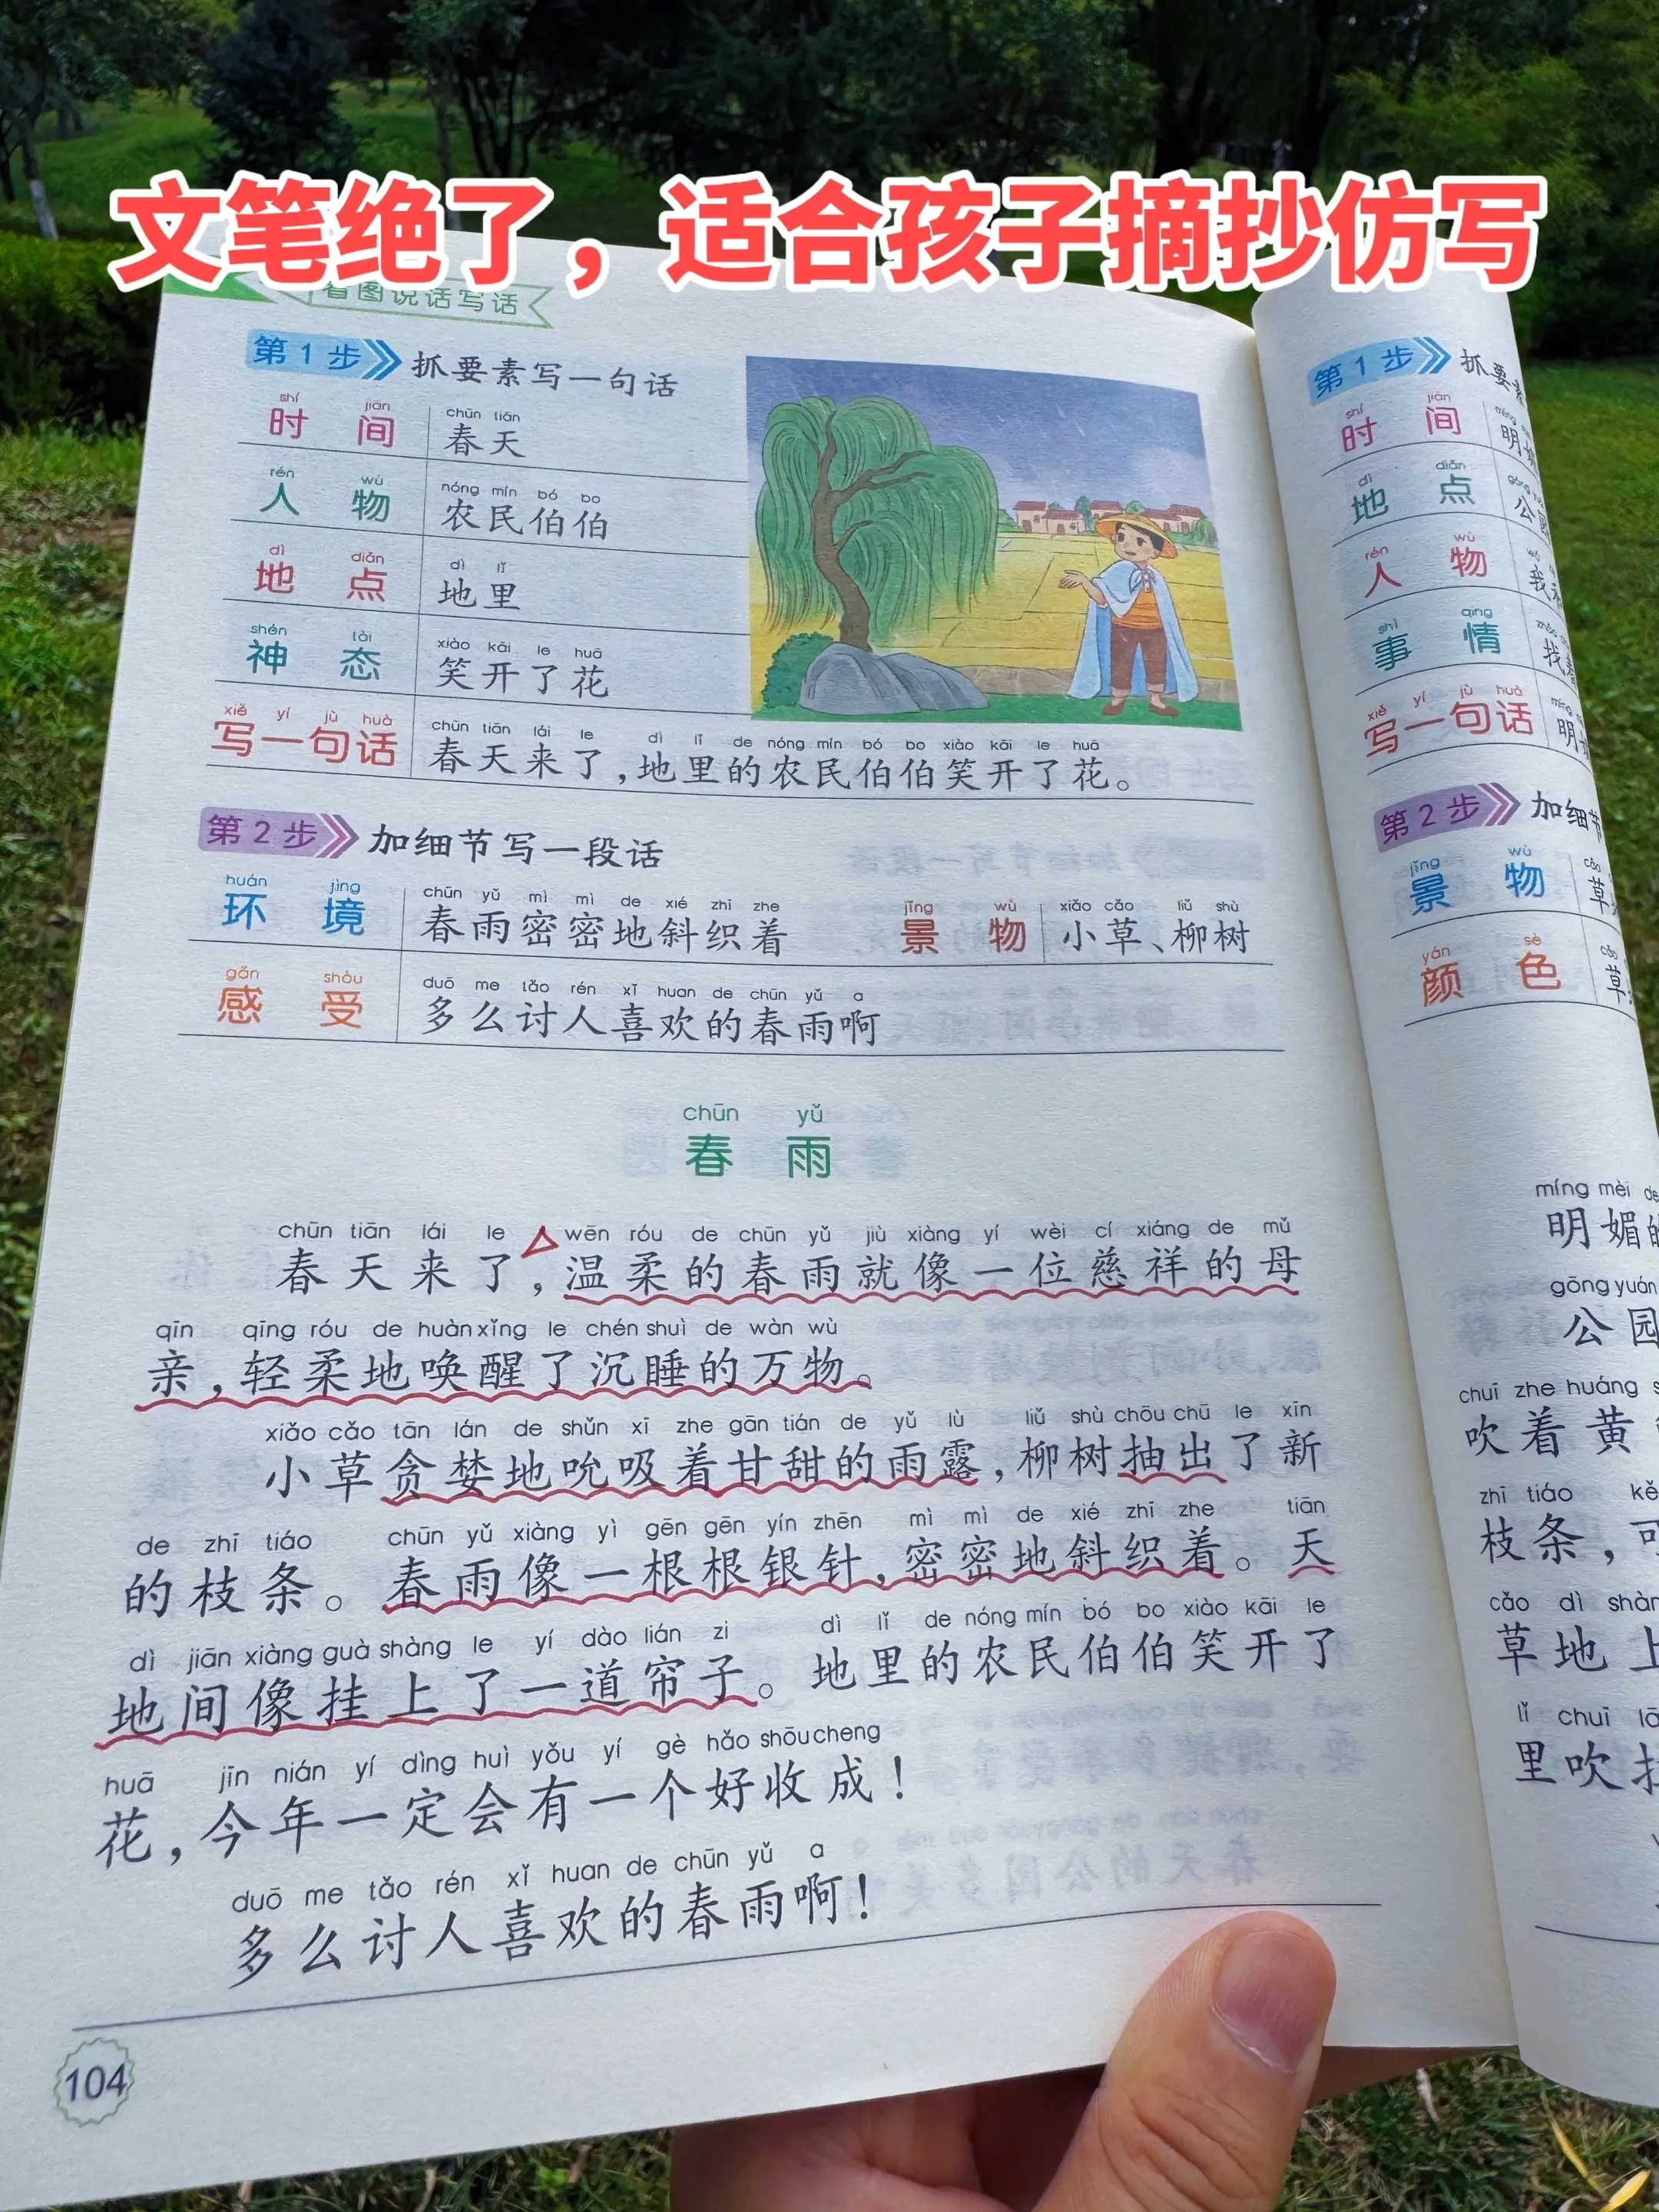 文笔绝了，适合孩子摘抄仿写
看图说话写话
第1步 抓要素写一句话
shí jiān chūn tiān
时间 春天
rén wù nóng mín bó bo
人物 农民伯伯
dì diǎn dì lǐ
地点 地里
shén tài xiào kāi le huā
神态 笑开了花
xiě yí jù huà chūn tiān lái le dì lǐ de nóng mín bó bo xiào kāi le huā
写一句话 春天来了，地里的农民伯伯笑开了花。
第2步 加细节写一段话
huán jìng chūn yǔ mì mì de xié zhī zhe jǐng wù xiǎo cǎo liǔ shù
环境 春雨密密地斜织着 景物 小草、柳树
gǎn shòu duō me tǎo rén xǐ huan de chūn yǔ a
感受 多么讨人喜欢的春雨啊
chūn yǔ
春雨
chūn tiān lái le wēn róu de chūn yǔ jiù xiàng yí wèi cí xiáng de mǔ
春天来了，温柔的春雨就像一位慈祥的母
qīn qīng róu de huàn xǐng le chén shuì de wàn wù
亲，轻柔地唤醒了沉睡的万物。
xiǎo cǎo tān lán de shǔn xī zhe gān tián de yǔ lù liǔ shù chōu chū le xīn
小草贪婪地吮吸着甘甜的雨露，柳树抽出了新
de zhī tiáo chūn yǔ xiàng yì gēn gēn yín zhēn mì mì de xié zhī zhe tiān
的枝条。春雨像一根根银针，密密地斜织着。天
dì jiān xiàng guà shàng le yí dào lián zi dì lǐ de nóng mín bó bo xiào kāi le
地间像挂上了一道帘子。地里的农民伯伯笑开了
huā jīn nián yí dìng huì yǒu yí gè hǎo shōu cheng
花，今年一定会有一个好收成！
duō me tǎo rén xǐ huan de chūn yǔ a
多么讨人喜欢的春雨啊！
104
第1步 抓要
shí jiān
时间 明
dì diǎn gōng
地点 公
rén wù wǒ
人物 我
shì qing
事情 找
xiě yí jù huà
写一句话 明
第2步 加细节
jǐng wù cǎo
景物 草
yán sè cǎo
颜色 草
míng mèi de
明媚的
gōng yuán
公园
chuī zhe huáng
吹着黄
zhī tiáo kě
枝条，可
cǎo dì shàng
草地上
lǐ chuī
里吹